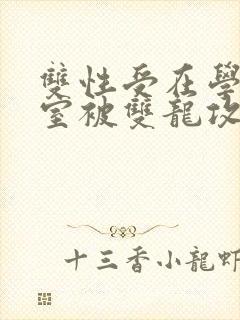 雙性受在學
室被雙龍攻
十三香小龍蝦